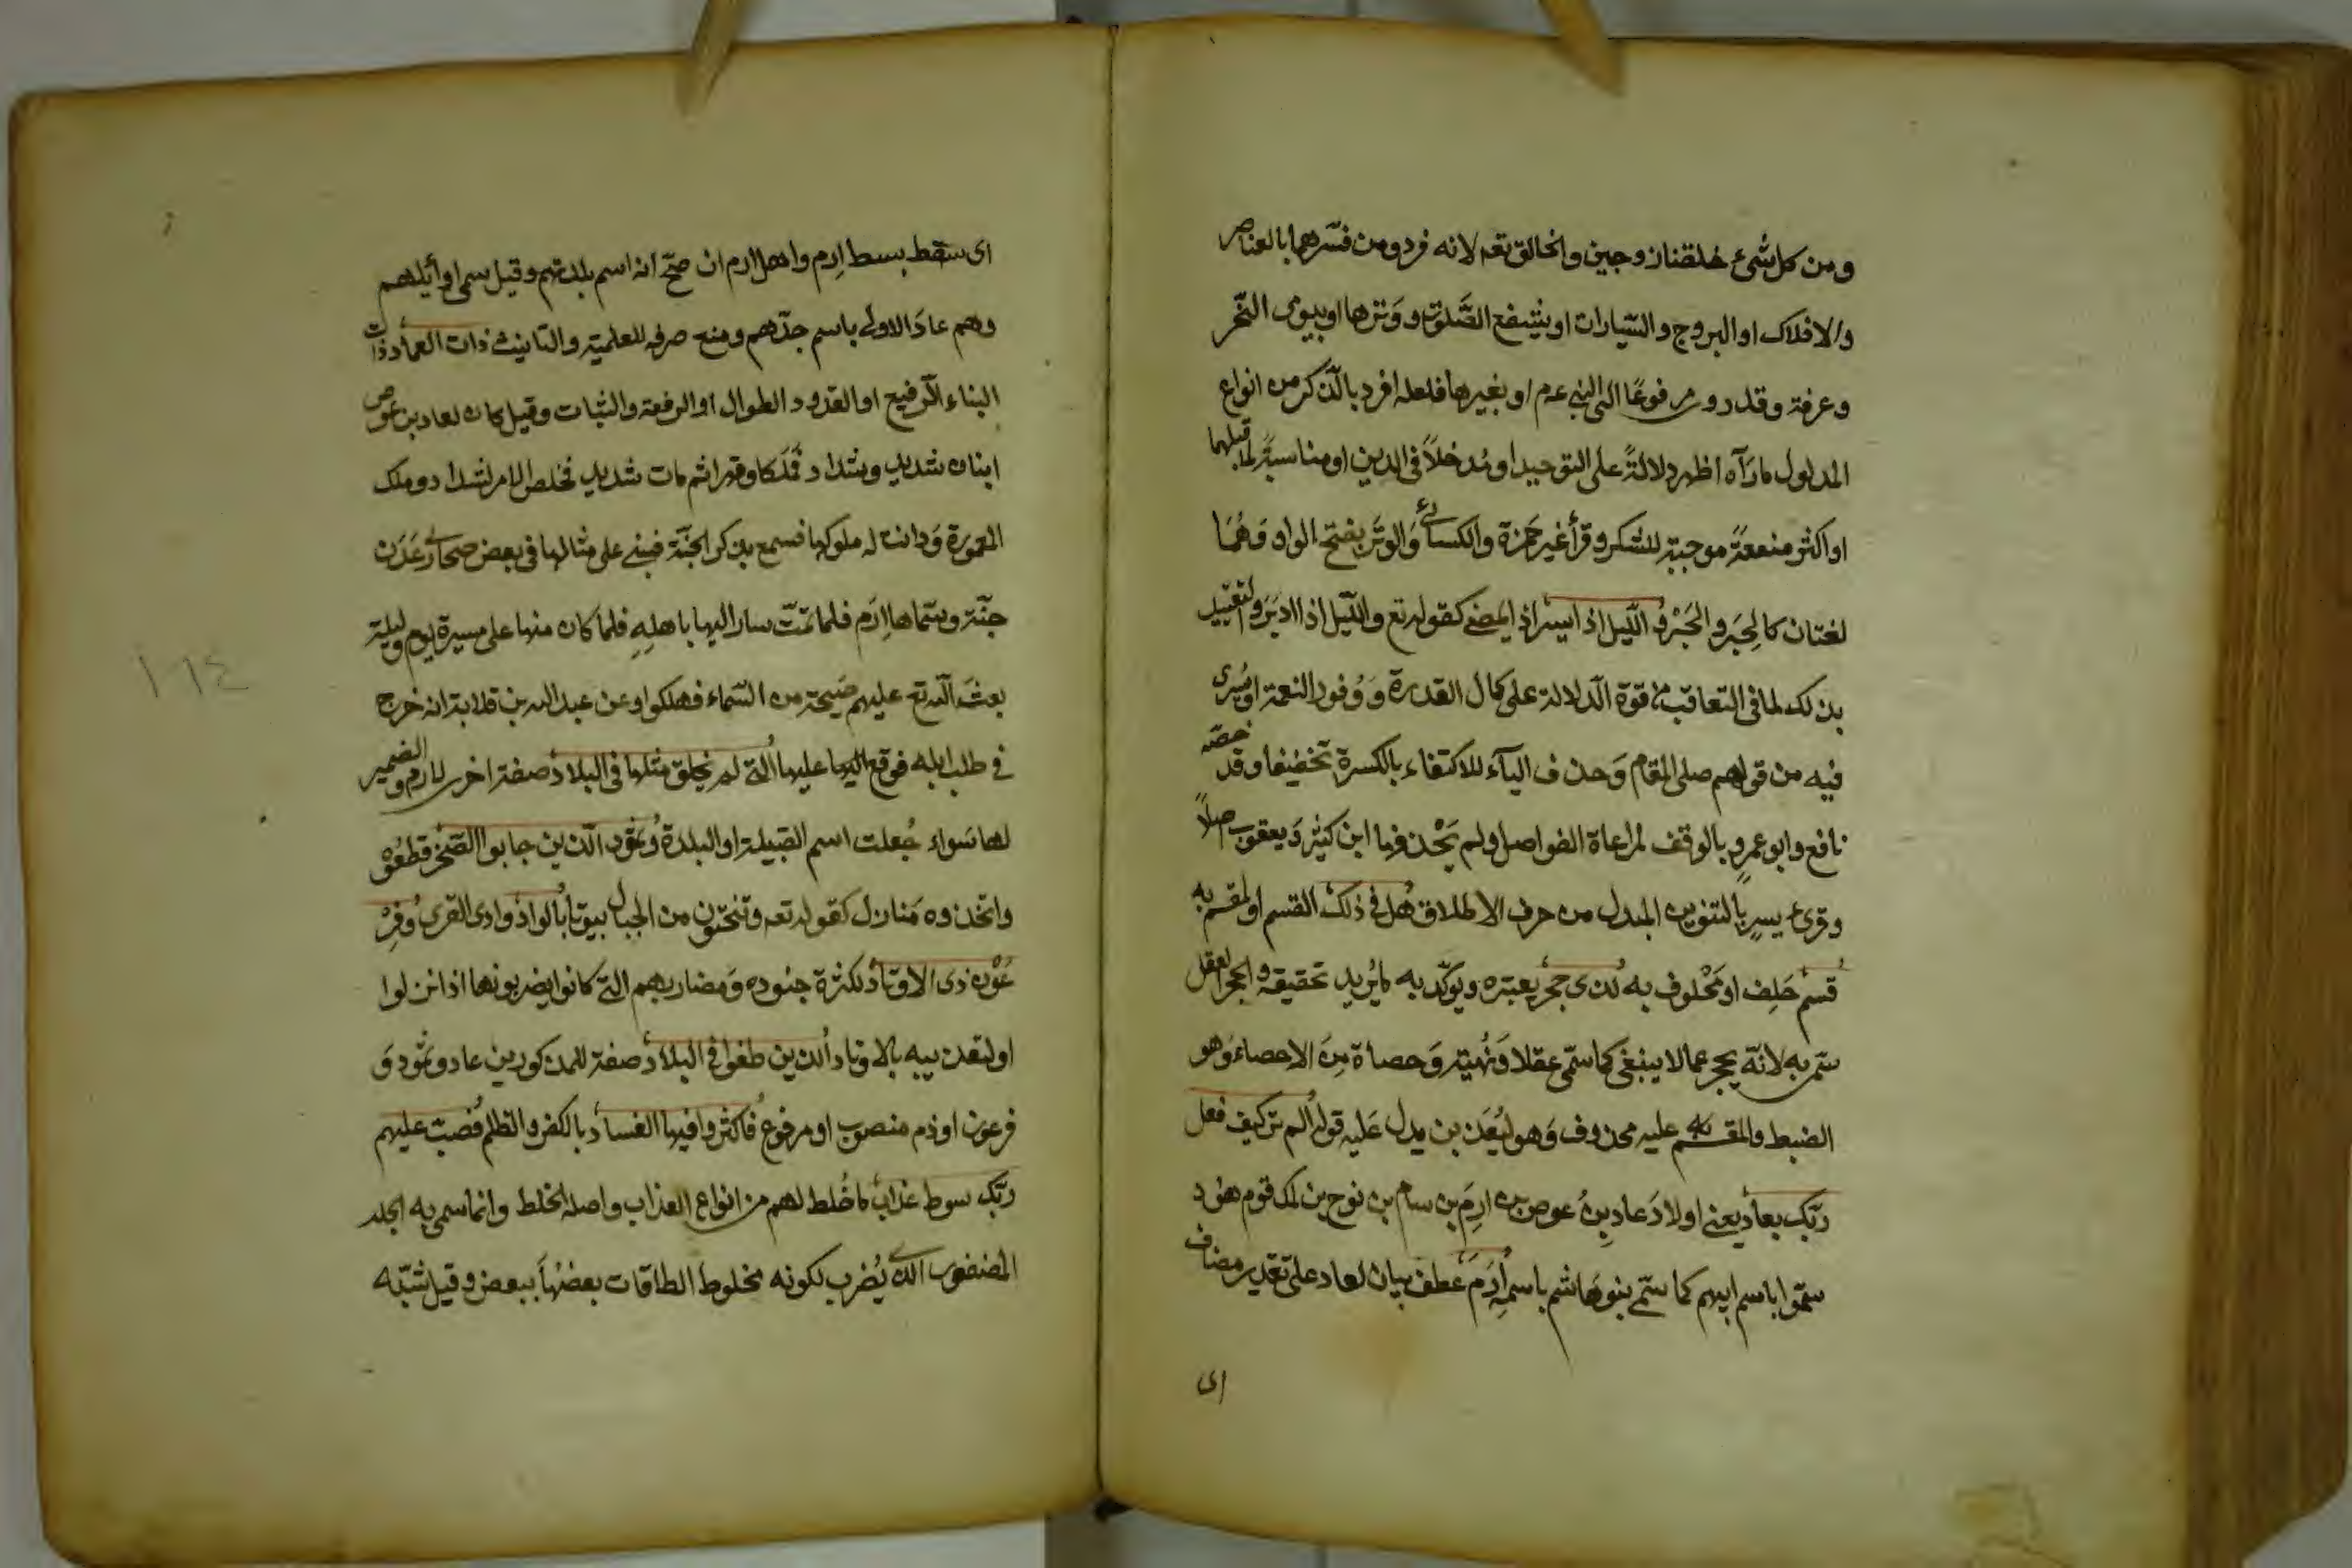 ومن كل شئ خلقنا زوجين والخالق تعه لانه فرد ومن فسّرهما بالعناصر
والافلاك او البروج والسّيارات او بشفع الصَّلوٰت ووَترها او بيومى النّحر
وعرفة وقد روى مرفوعًا الى النبى عم او بغيرها فلعله افرد بالذّكر من انواع
المدلول ما رَآه اظهر دلالةً على التوحيد او مُدخلاً فى الدين او مناسبةً لما قبلهما
او اكثر منفعةً موجبة للشكر وقرأ غير حَمزة والكسائى وَالوَتَر بفتح الواو وَهُمَا
لغتان كالحِبَر والحَبْرِ والّليل اذا يسر اذا يمضى كقوله تع والّليل اذا ادبَرَ والتقييد
بذلك لما فى التعاقب من قوة الّدلالة على كمال القدرة وَوُفور النعمة او يُسرى
فيه من قولهم صلى المقام وَحذف اليآء للاكتفاء بالكسرة تخفيفا وقد خصّه
نافع وابو عمرٍو بالوقف لمراعاة الفواصل ولم يَحْذفها ابن كثير وَيعقوب اصلاً
وقرئ يسرٍ بالتنوين المبدل من حرف الاطلاق هل فى ذلك القسم او المقسم به
قسم حَلِف او مَحْلوف به لذى حجر يعتبره ويؤكّد به ما يُريد تحقيقه والحجر العقل
سمّى به لانّه يحجر عمالا ينبغى كما سمّى عقلا وَنُهيَة وَحصاة مِنَ الاحصاء وَهو
الضبط والمقسم عليه محذوف وَهو ليُعَذبن يدل عَليه قوله ألم تر كيف فعل
ربّك بعاد يعنى اولادَ عاد بن عوص بن ارِمَ بن سام بن نوح بن لمك قوم هود
سمّوا باسم ابيهم كما سمّى بنو هَاشم باسمهِ اِرَمَ عطف بيان لعاد على تقدير مضاف
اى
اى سقط بسط اِرم واهل ارم ان صحّ انه اسم بلدتهم وقيل سمى اوأيلهم
وهم عادَ الاولى باسم جدّهم ومنع صرفه للعلمية والتانيث ذات العماد ذات
البناء الرفيع او القدود الطوال او الرفعة والثبات وقيل كان لعاد بن عوص
ابنان شديد وشداد فمَلَكا وقهرا ثم مات شديد فخلص الامر لشداد وملك
المعمورة وَدانت له ملوكها فسمع بذكر الجنّة فبنى على مثالها فى بعض صحارى عَدَن
جنّة وسمّاها اِرَم فلما تمّت سار اليها باهلِهِ فلما كان منها على مسيرة يوم وليلة
بعثَ الله تع عليهم صَيحة من السّماء فهلكوا وعن عبد الله بن قلابة انه خرج
فى طلب ابله فوقع عليها التى لم يخلق مثلها فى البلاد صفة اخرى لارم والضمير
لها سَواء جُعلت اسم القبيلة او البلدة وَثمود الّذين جابوا الصّخر قطعُوه
واتخذوه مَنازل كقوله تعه وتنحتون من الجبال بيوتا بالواد وادى القرى وَفِرْ
عَوْن ذى الاوتاد لكثرة جنوده وَمضاربهم التى كانوا يضربونها اذا نزلوا
او لتعذيبه بالاوتاد الذين طغوا فى البلاد صفة للمذكورين عاد وثمود وَ
فرعون او ذم منصوب او مرفوع فاكثروا فيها الفساد بالكفر والظلم فصبّ عليهم
ربّك سوط عذاب ما خُلط لهم من انواع العذاب واصله الخلط وانما سمى به الجلد
المضفور الذى يُضرب لكونه مخلوط الطاقات بعضهَا ببعض وقيل شبّه
١٦٤